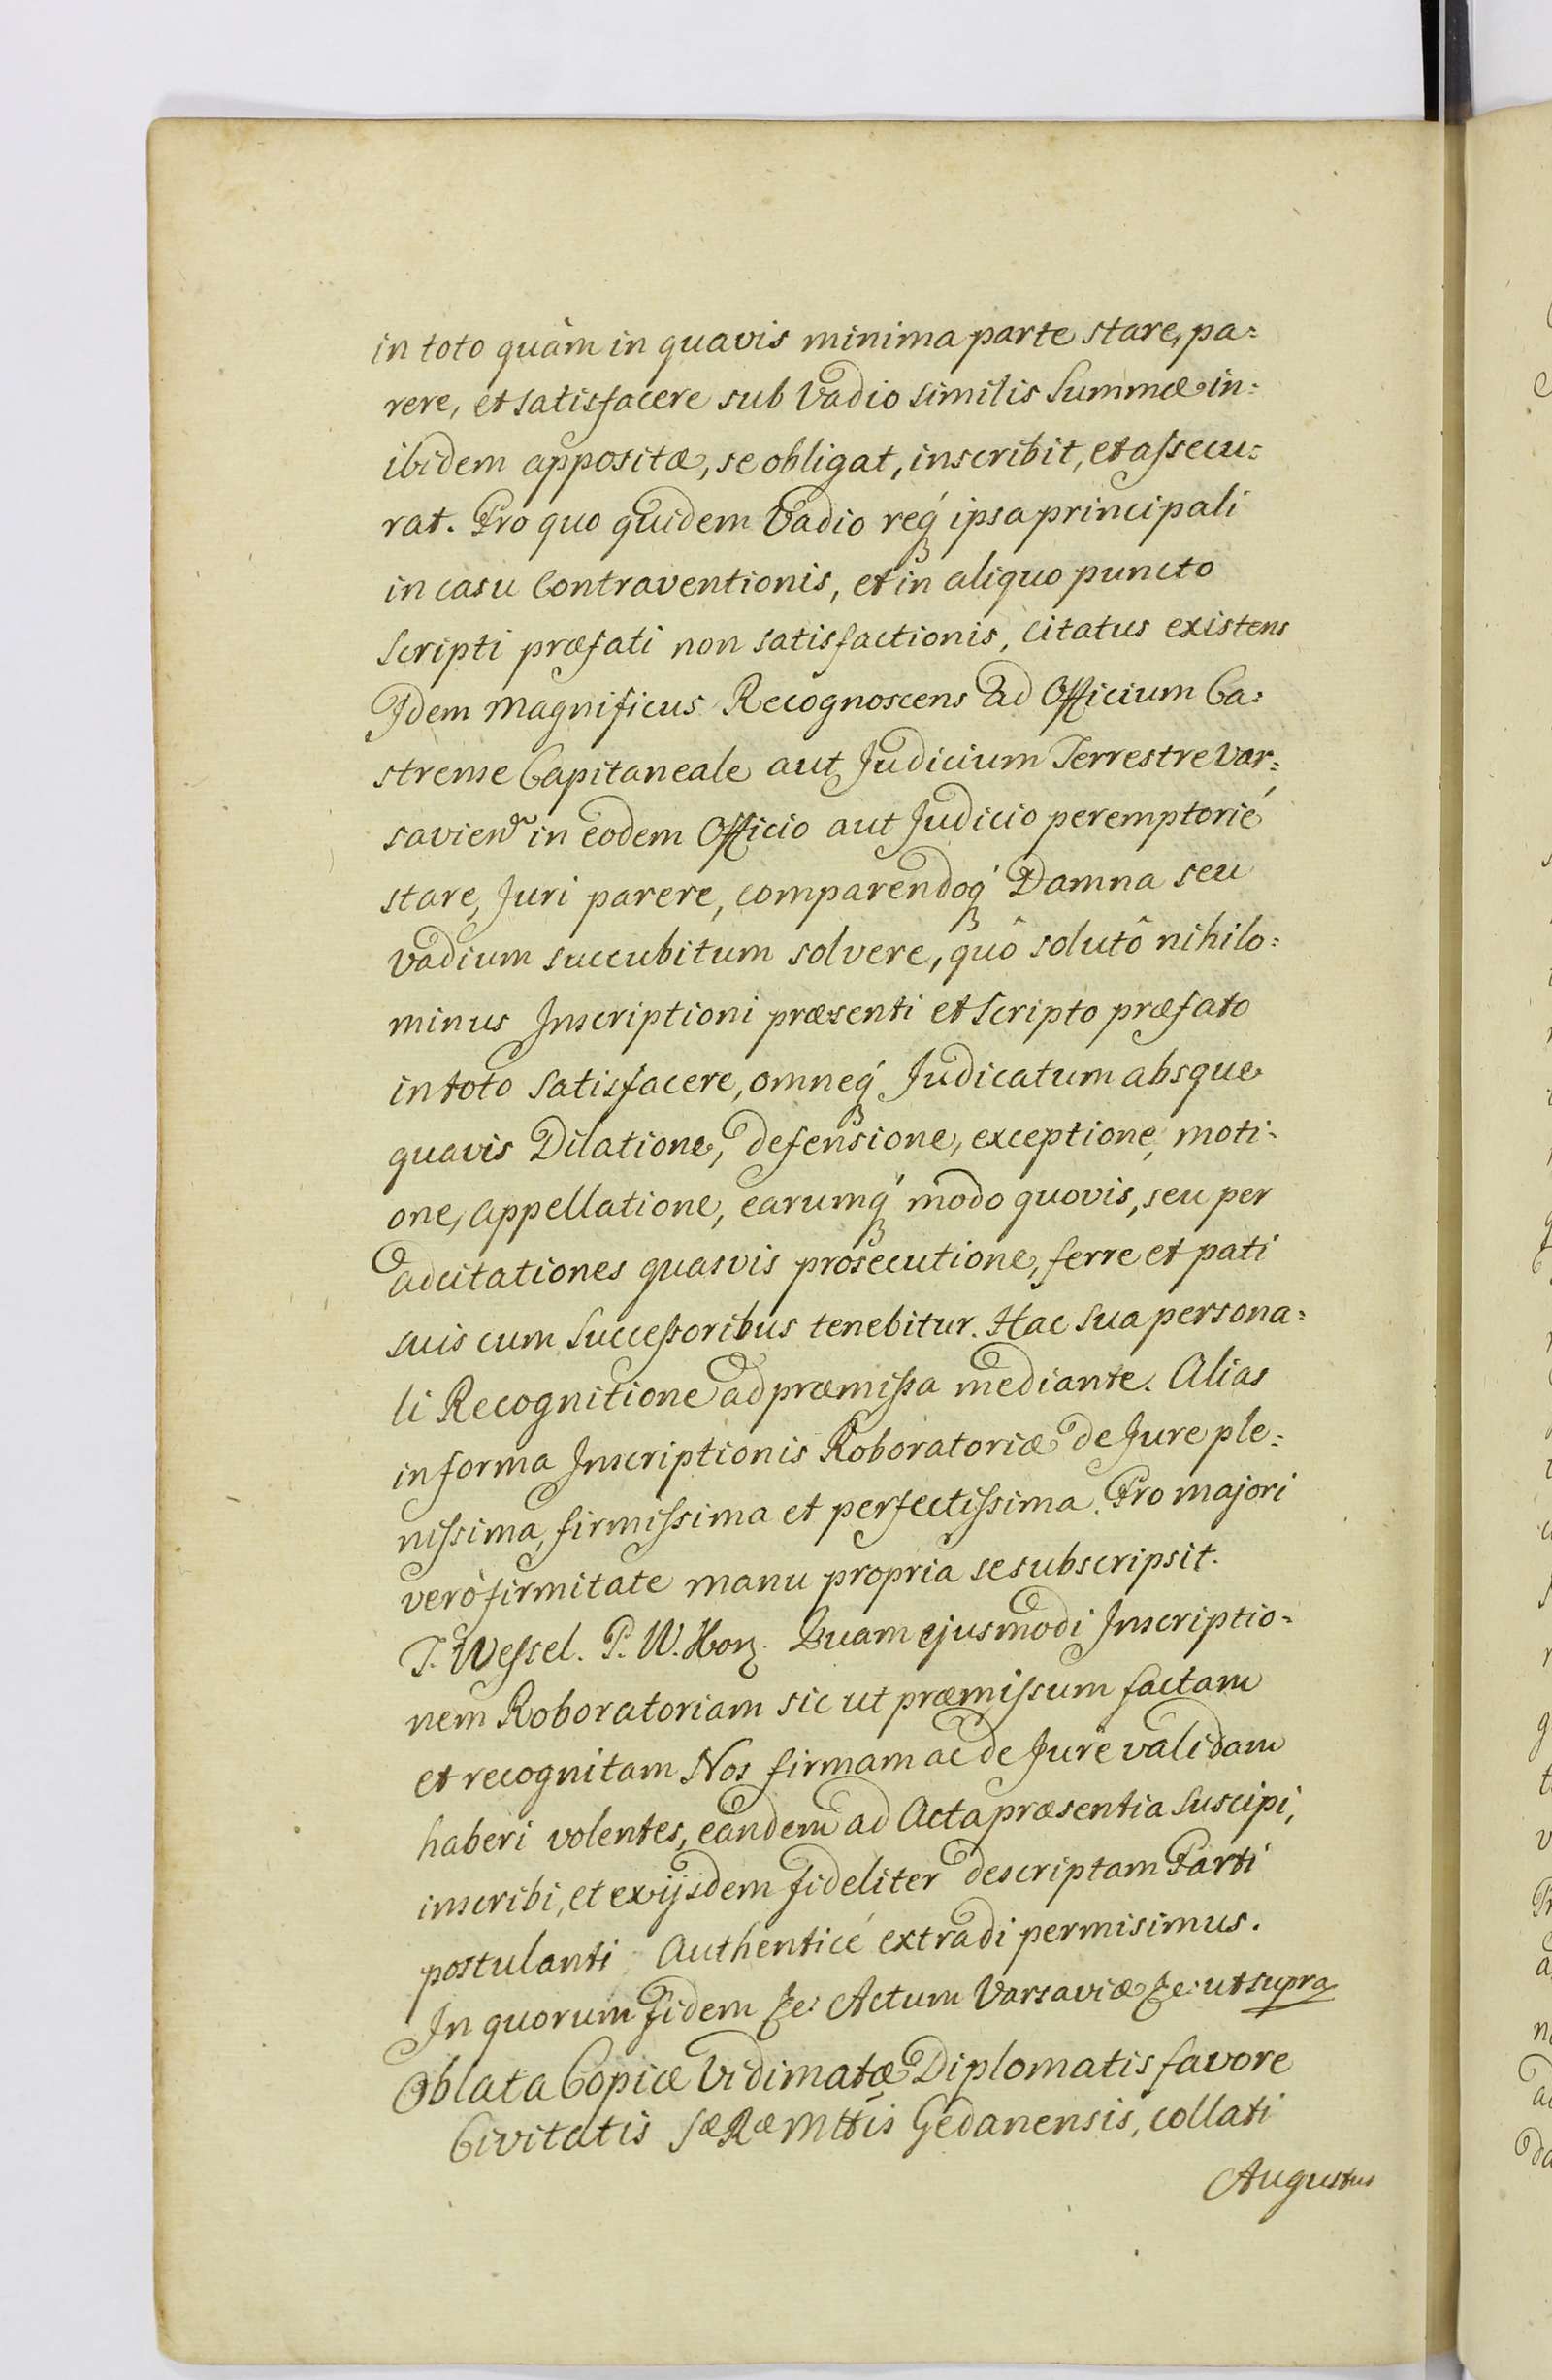 in toto quàm in quavis minima parte stare, pa=
rere, et satisfacere sub Vadio similis Summæ in=
ibidem appositæ, se obligat, inscribit, et assecu=
rat. Pro quo quidem Vadio req́ꝫ ipsa principali
in casu Contraventionis, et in aliquo puncto
Scripti præfati non satisfactionis, citatus existens
Idem Magnificus Recognoscens ad Officium Ca=
strense Capitaneale aut Judicium Terrestre Var=
savien̄ in eodem Officio aut Judicio peremptorié
stare, Juri parere, comparendoq́ꝫ Damna seu
Vadium succubitum solvere, quô solutô nihilo=
minus Inscriptioni præsenti et Scripto præfato
in toto Satisfacere, omneq́ꝫ Judicatum absque
quavis Dilatione, defensione, exceptione, moti=
one, appellatione, earumq́ꝫ modo quovis, seu per
adcitationes quasvis prosecutione, ferre et pati
suis cum Successoribus tenebitur. Hac sua persona=
li Recognitione ad præmissa mediante. Alias
in forma Inscriptionis Roboratoriæ de Jure ple=
nissima, firmissima et perfectissima. Pro majori
verò firmitate manu propria se subscripsit.
T. Wessel. P. W. Kor. Quam ejusmodi Inscriptio=
nem Roboratoriam sic ut præmissum factam
et recognitam Nos firmam ac de Jure validam
haberi volentes, eandem ad Acta præsentia Suscipi,
inscribi, et ex ijsdem fideliter descriptam Parti
postulanti Authenticé extradi permisimus.
In quorum fidem &c: Actum Varsaviæ &c: ut supra
Oblata Copiæ Vidimatæ Diplomatis favore
Civitatis Sæ Ræ Mttis Gedanensis, collati
Augustus